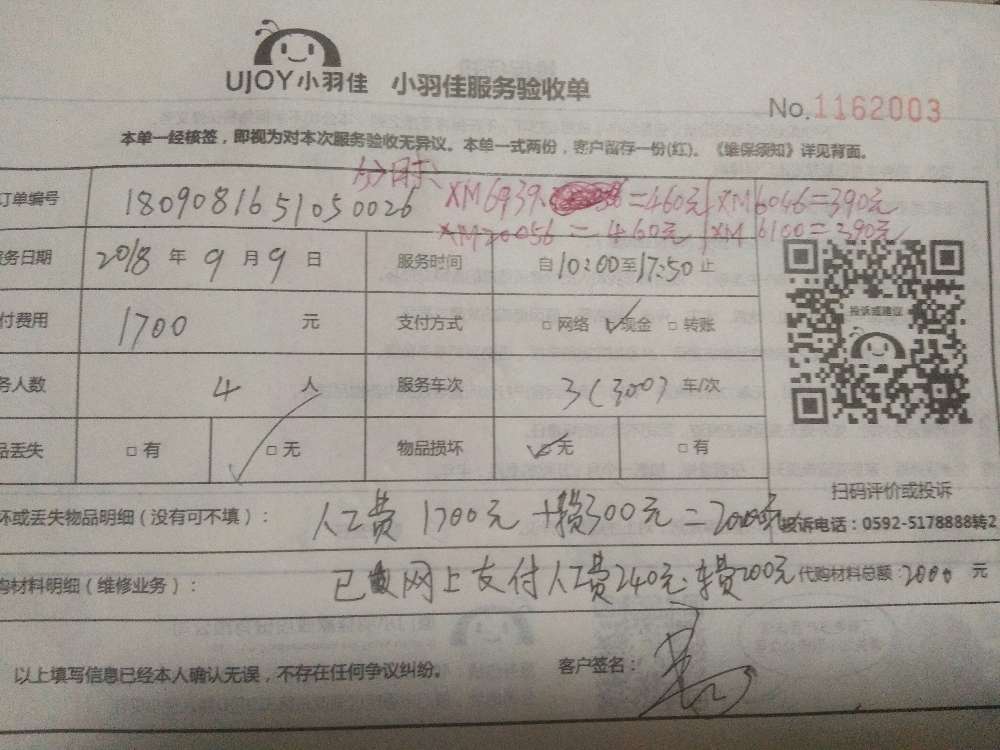 UJOY小羽佳 小羽佳服务验收单
No.1162003
本单一经核签，即视为对本次服务验收无异议。本单一式两份，客户留存一份(红)。《维保须知》详见背面。
分时:
订单编号 1809081651050026 XM6939 =460元 XM6046=390元
XM20056=460元 XM6100=390元
务日期 2018年9月9日 服务时间 自10:00至17:50止
付费用 1700 元 支付方式 □网络 ☑现金 □转账
投诉或建议
务人数 4 人 服务车次 3(300) 车/次
品丢失 □有 ☑无 物品损坏 ☑无 □有
扫码评价或投诉
坏或丢失物品明细（没有可不填）： 人工费1700元+车费300元=2000元
投诉电话：0592-5178888转2
购材料明细（维修业务）： 已 网上支付人工费240元.车费200元 代购材料总额：2000 元
以上填写信息已经本人确认无误，不存在任何争议纠纷。 客户签名：